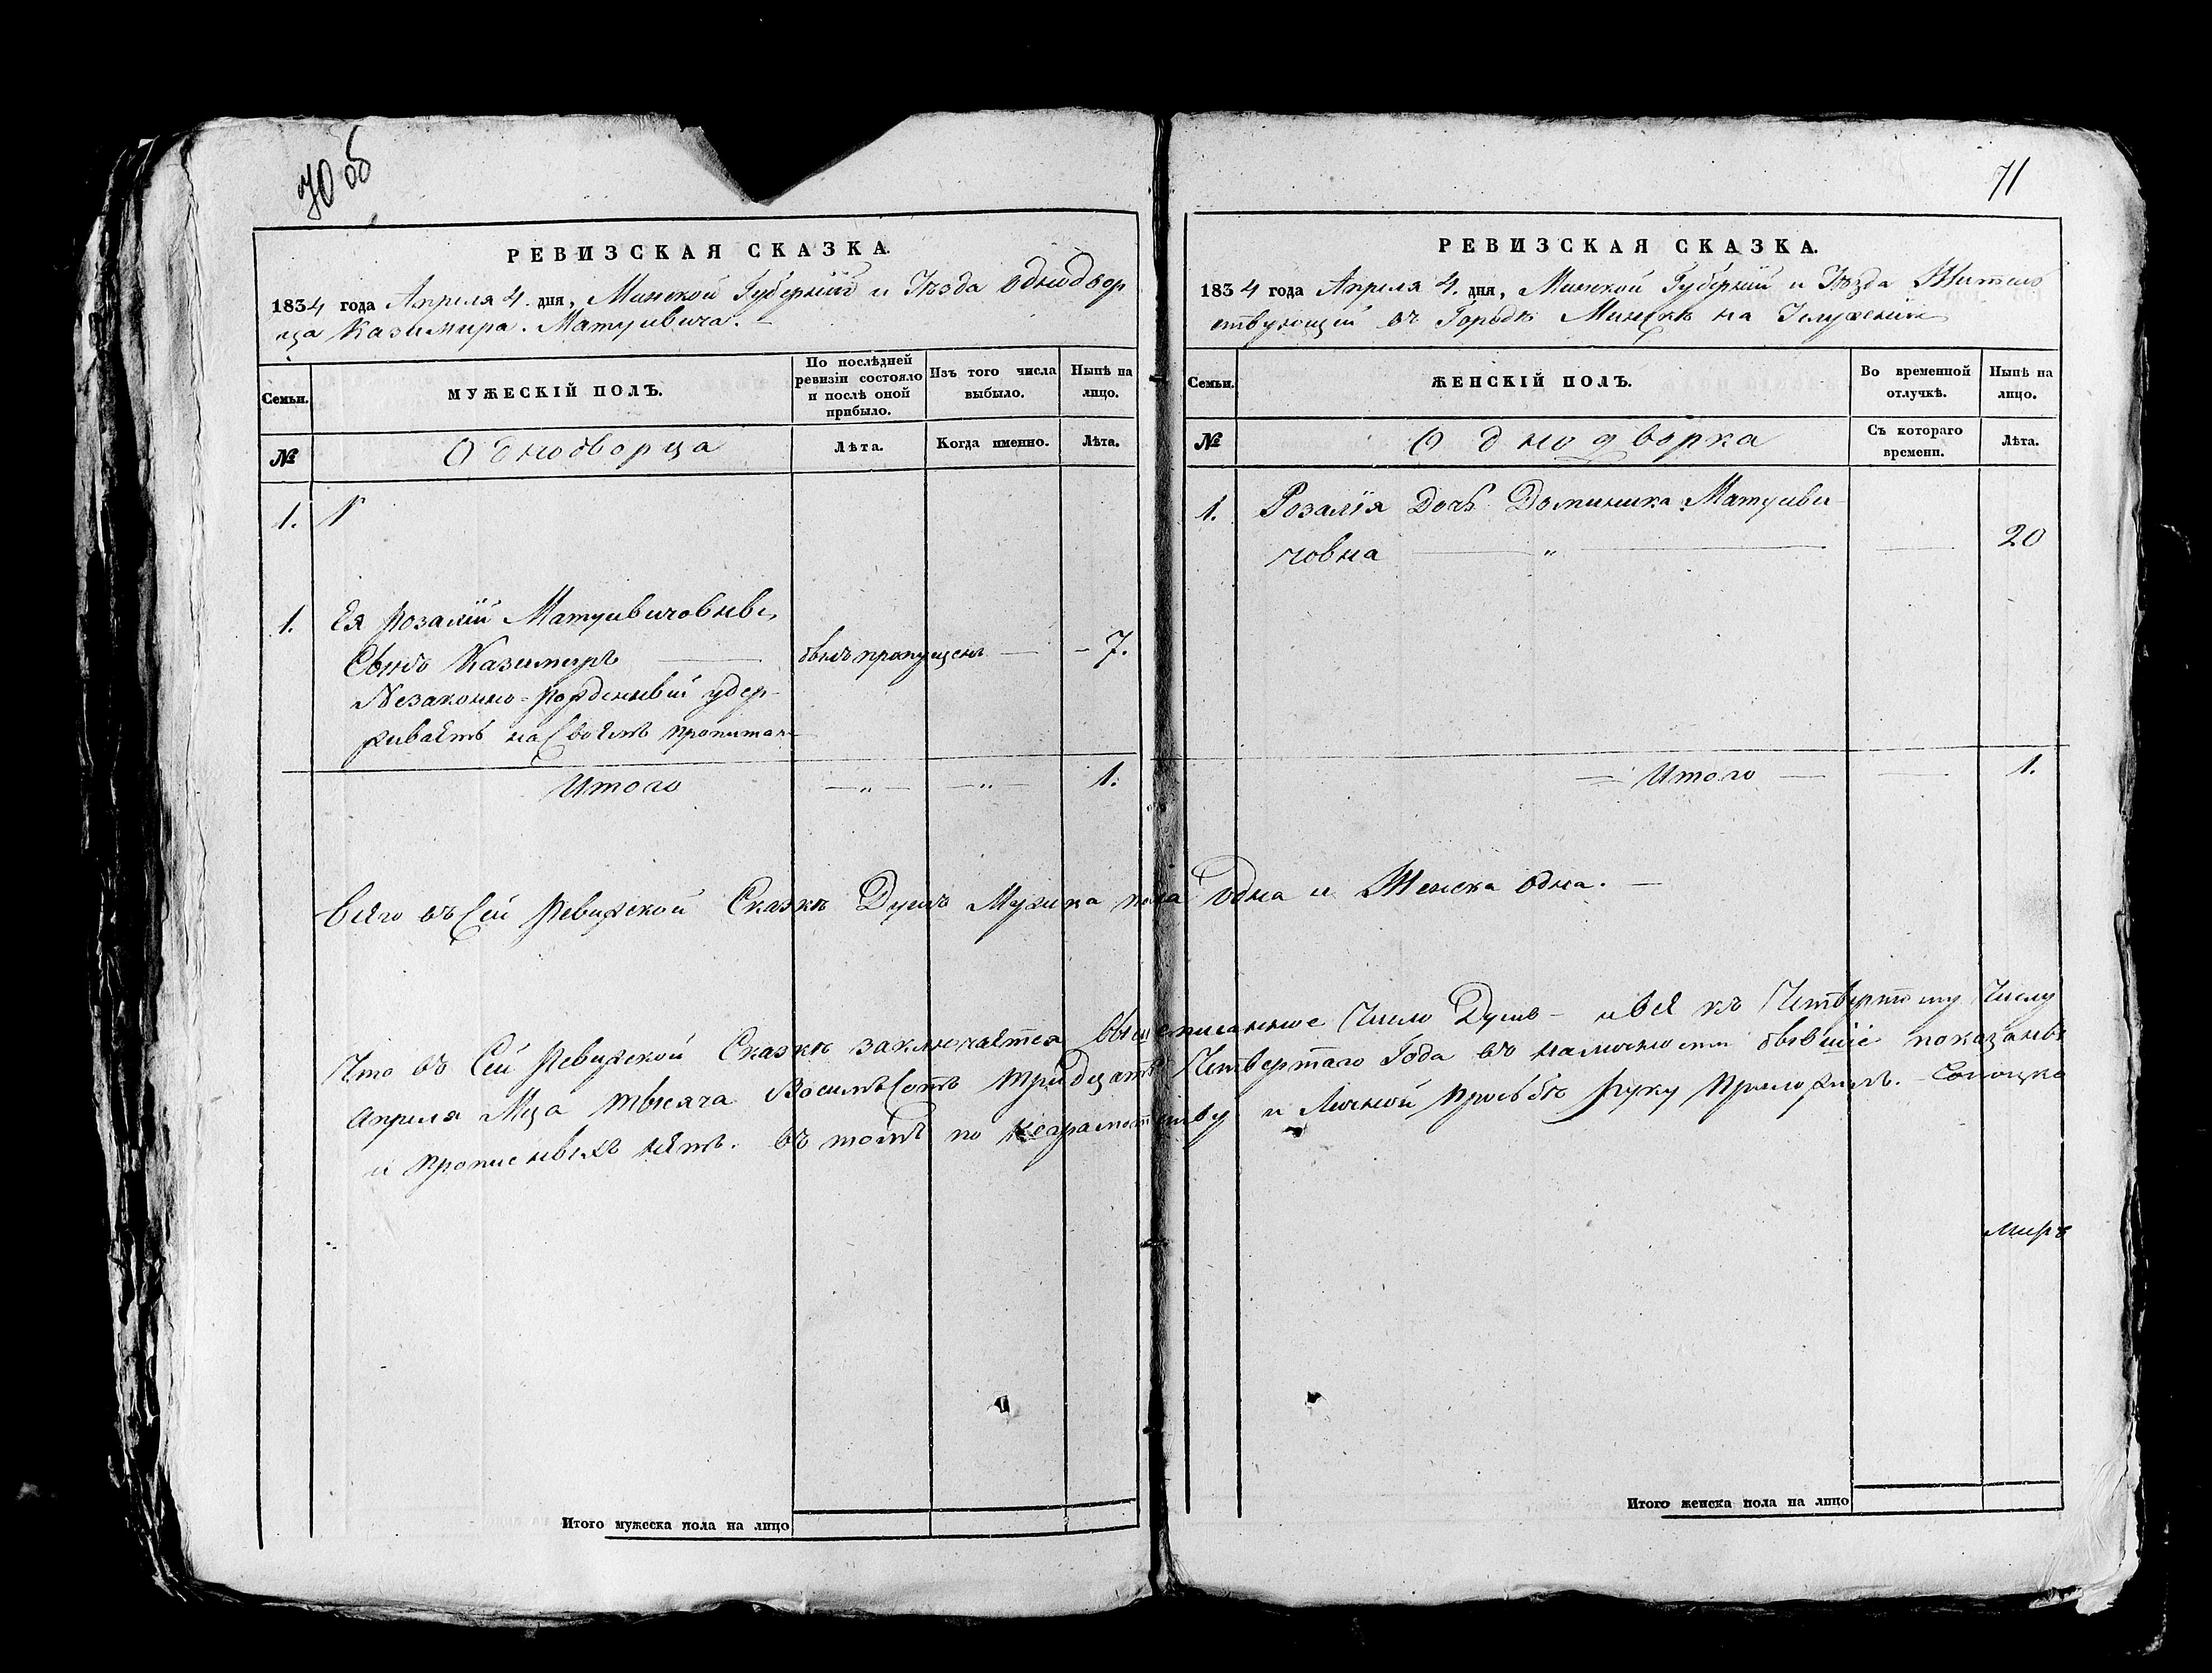 70 об
РЕВИЗСКАЯ СКАЗКА.
1834 года Апреля 4. дня, Минской Губерніи и Уезда однодвор
ца Казимира. Матусевича. —
Семьи.
МУЖЕСКІЙ ПОЛЪ.
По послѣдней
ревизіи состояло
и послѣ оной
прибыло.
Изъ того числа
выбыло.
Нынѣ на
лицо.
№
Однодворца
Лѣта.
Когда именно.
Лѣта.
1.
1.
Ея Розаліи Матусевичовны,
Сынъ Казимиръ —
былъ пропущенъ — - 7.
Незаконно-рожденный удер-
живаетъ на Своемъ пропитан-
Итого — „ — — „ — 1.
Итого мужеска пола на лицо
71
РЕВИЗСКАЯ СКАЗКА.
1834 года Апреля 4. дня, Минской Губерніи и Уезда Житель
ствующей въ Городѣ Минскѣ на
Семьи.
ЖЕНСКІЙ ПОЛЪ.
Во временной
отлучкѣ.
Нынѣ на
лицо.
№
Однодворка
Съ котораго
времени.
Лѣта.
1. Розалія Дочь Доминика Матусеви
човна — „ — — 20
— Итого — — 1.
Всего въ Сей Ревижской Сказкѣ Душъ Мужска пола одна и Женска одна. —
Что въ Сей Ревижской Сказкѣ заключается вышеписанное Число Душъ — и все къ Четвертому Числу
Апреля Мца тысяча Восемьсотъ тридцать Четвертаго Года въ наличности бывшіе показаны
и прописныхъ нетъ. въ томъ по неграмотству и Личной прозьбѣ руку приложилъ. —
Итого женска пола на лицо